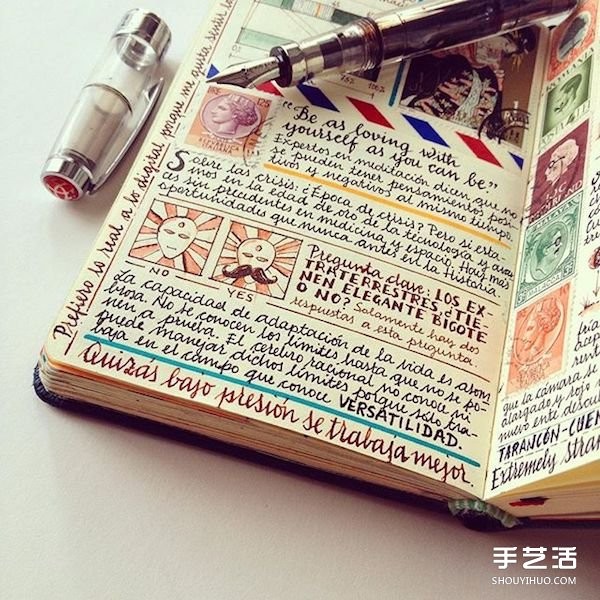 Prefiero lo real a lo digital porque me gusta sentir
"Be as loving with
yourself as you can be."
Expertos en meditación dicen que no
se pueden tener pensamientos posi-
tivos y negativos al mismo tiempo.
Sobre las crisis: ¿Época de crisis? Pero si esta-
mos en la edad de oro de la tecnología y avan
ces sin precedentes en medicina y espacio. Hay más
oportunidades que nunca antes en la Historia.
NO YES
Pregunta clave: LOS EX-
TRATERRESTRES ¿TIE-
NEN ELEGANTE BIGOTE
O NO? Solamente hay dos
respuestas a esta pregunta.
La capacidad de adaptación de la vida es asom
brosa. No se conocen los límites hasta que no se po-
nen a prueba. El cerebro racional no conoce ni
puede manejar dichos límites porque sólo tra-
baja en el campo que conoce VERSATILIDAD.
Quizás bajo presión se trabaja mejor.
que la cámara se
alargado y rojo
nuevo ente descu
TARANCÓN-CUEN
Extremely Stran
手艺活
SHOUYIHUO.COM